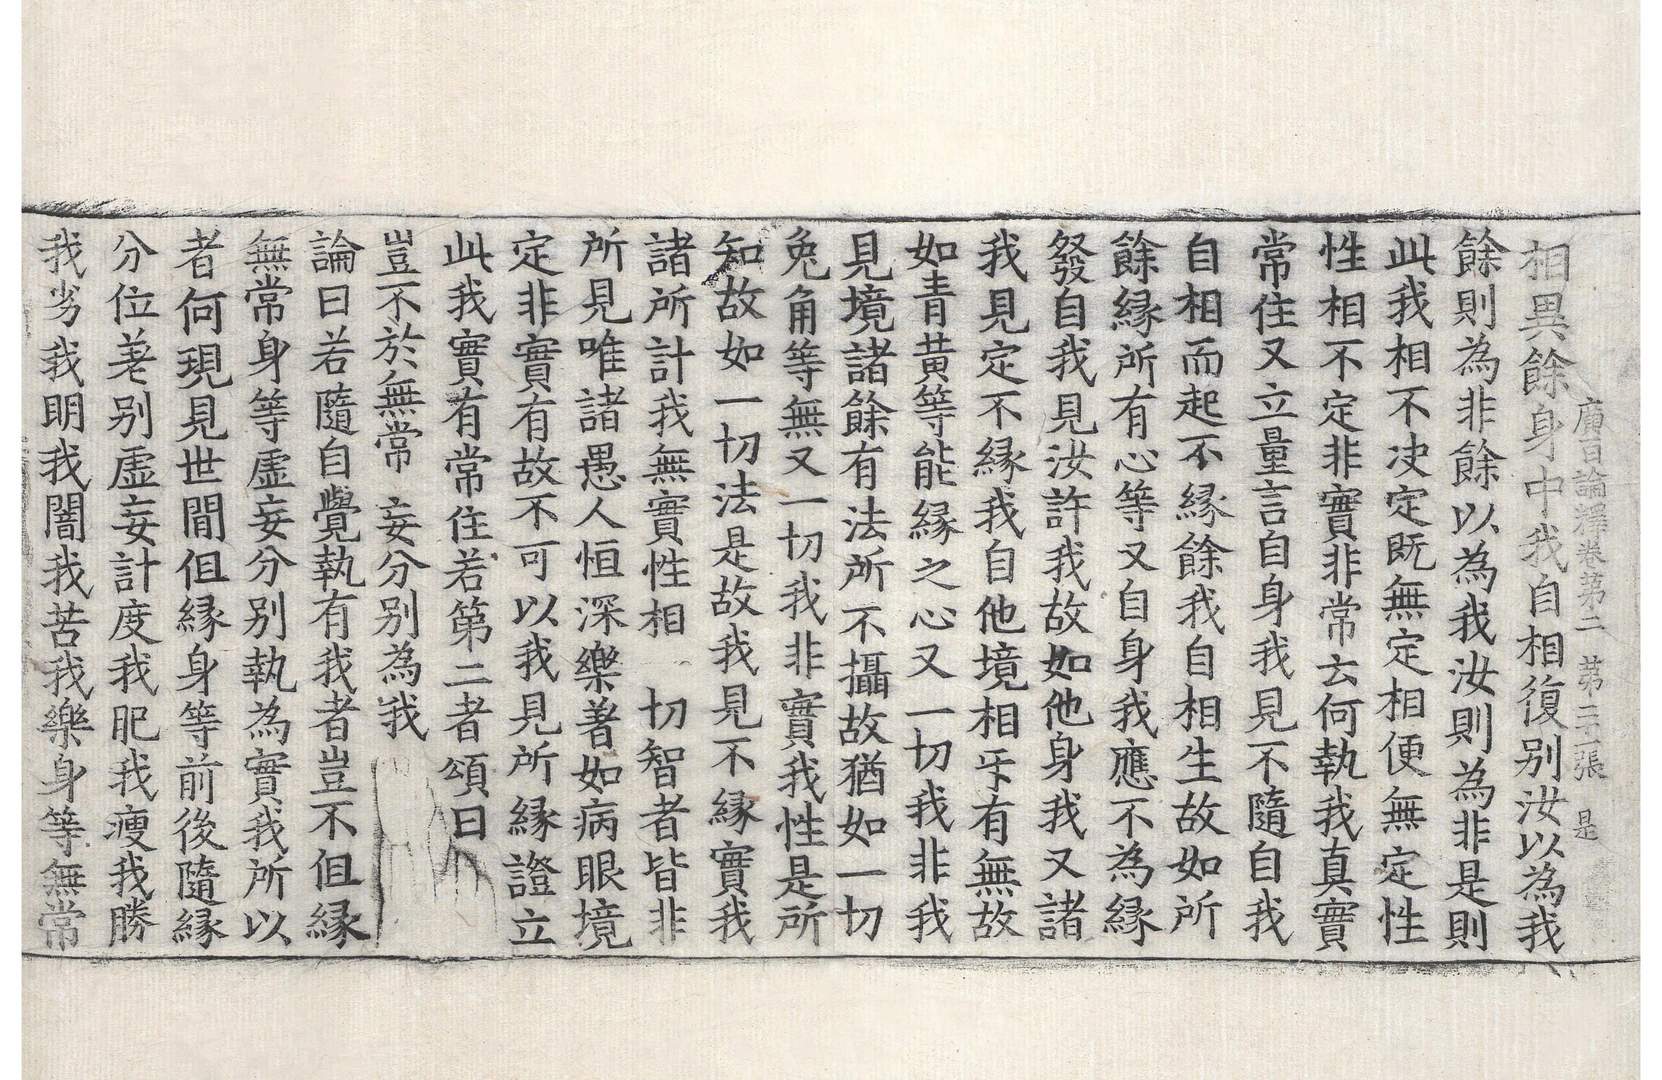 廣百論釋卷第二　第三張　是
相異餘身中我自相復別汝以為我
餘則為非餘以為我汝則為非是則
此我相不決定既無定相便無定性
性相不定非實非常云何執我真實
常住又立量言自身我見不隨自我
自相而起不緣餘我自相生故如所
餘緣所有心等又自身我應不為緣
發自我見汝許我故如他身我又諸
我見定不緣我自他境相牙有無故
如青黃等能緣之心又一切我非我
見境諸餘有法所不攝故猶如一切
兔角等無又一切我非實我性是所
知故如一切法是故我見不緣實我
諸所計我無實性相　切智者皆非
所見唯諸愚人恒深樂著如病眼境
定非實有故不可以我見所緣證立
此我實有常住若第二者頌曰
豈不於無常　妄分別為我
論曰若隨自覺執有我者豈不但緣
無常身等虛妄分別執為實我所以
者何現見世間但緣身等前後隨緣
分位差別虛妄計度我肥我瘦我勝
我劣我明我闇我苦我樂身等無常